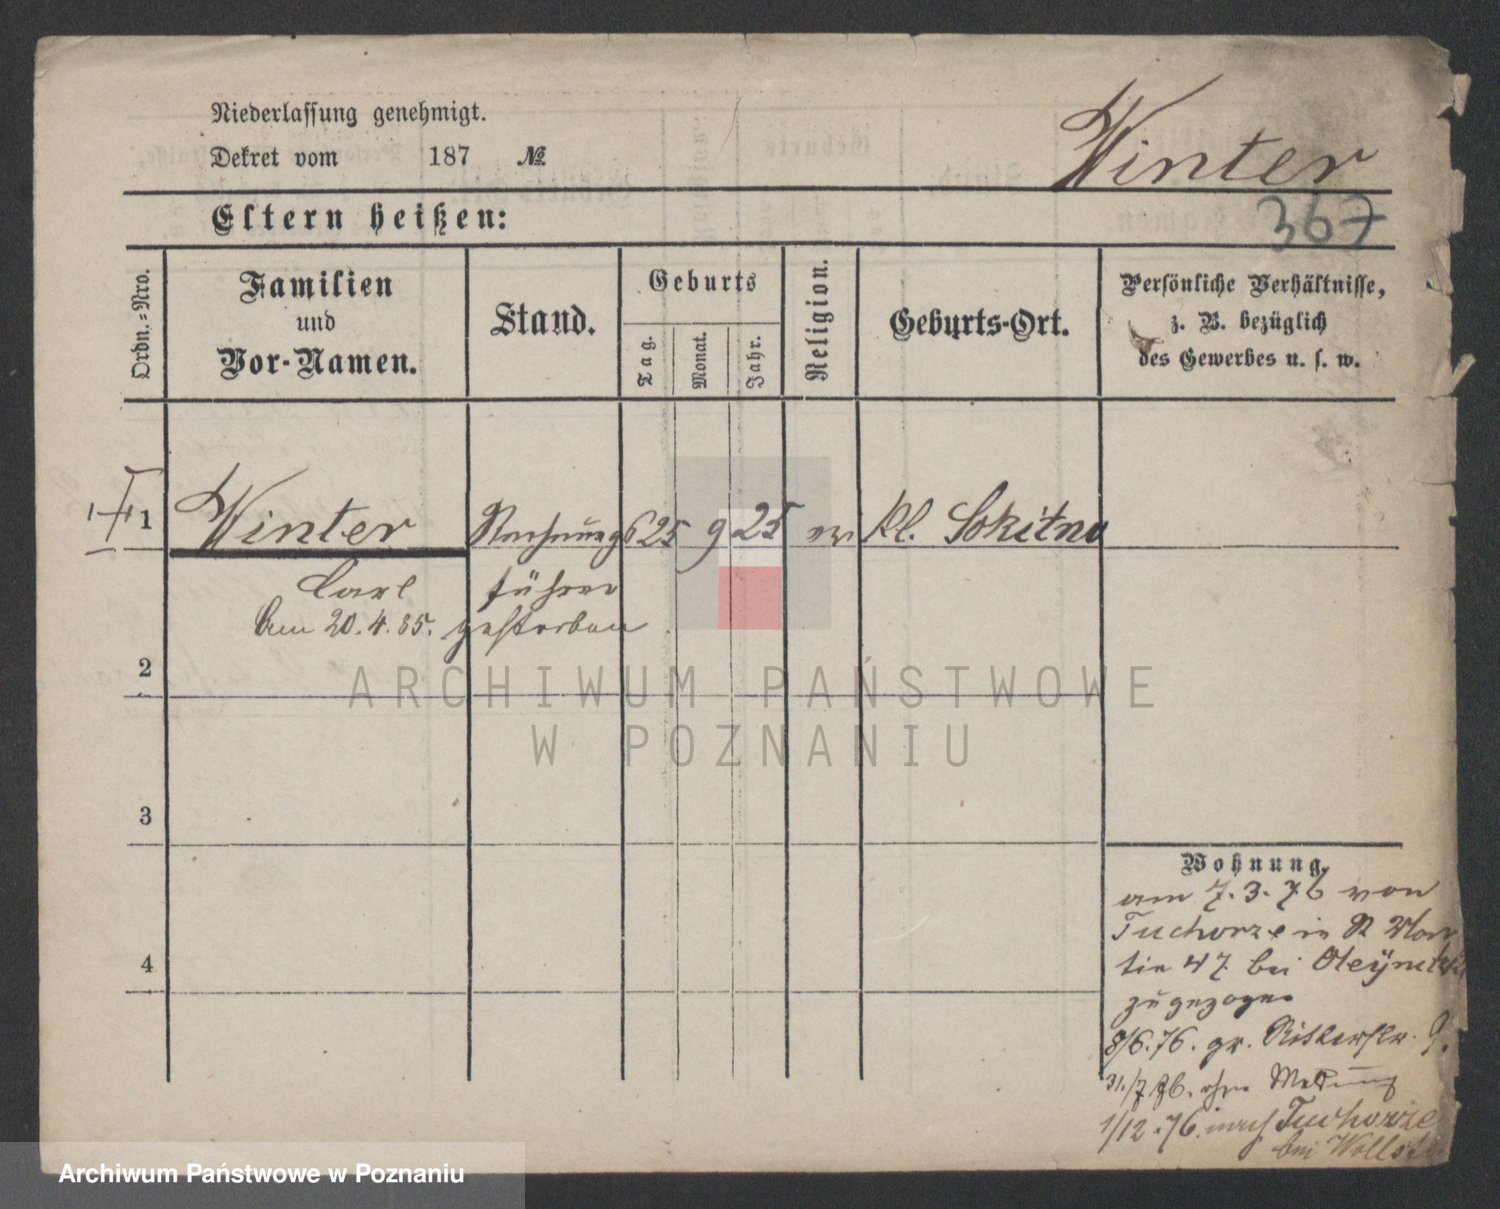 Niederlassung genehmigt.
Dekret vom 187 №
Winter
367
Eltern heißen:
Ordn.-Nro.
Familien
und
Vor-Namen.
Stand.
Geburts
Tag.
Monat.
Jahr.
Religion.
Geburts-Ort.
Persönliche Verhältnisse,
z. B. bezüglich
des Gewerbes u. s. w.
1 Winter Rechnungs 25 9 25 ev Kl. Sokitno
Carl führer
Am 20.4.85. gestorben
2
ARCHIWUM PAŃSTWOWE
W POZNANIU
3
4
Wohnung.
am 7.3.76 von
Tuchorze in St Mar
tin 47 bei
zugezogen
8/6.76. gr. Ritterstr. 9.
31./7 76. ohne Meldung
1/12.76. nach Tuchorze
bei Wollst
Archiwum Państwowe w Poznaniu